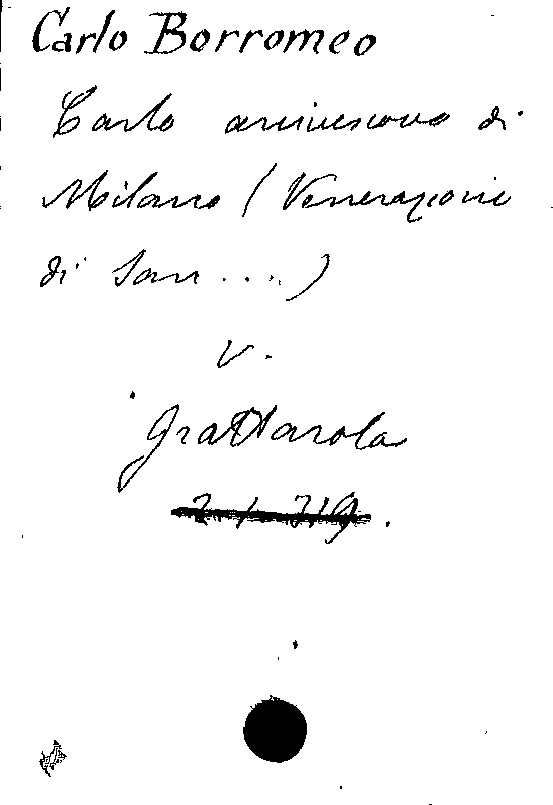 Carlo Borromeo
Carlo arcivescovo di
Milano (Venerazione
di San ....)
V.
Grattarola